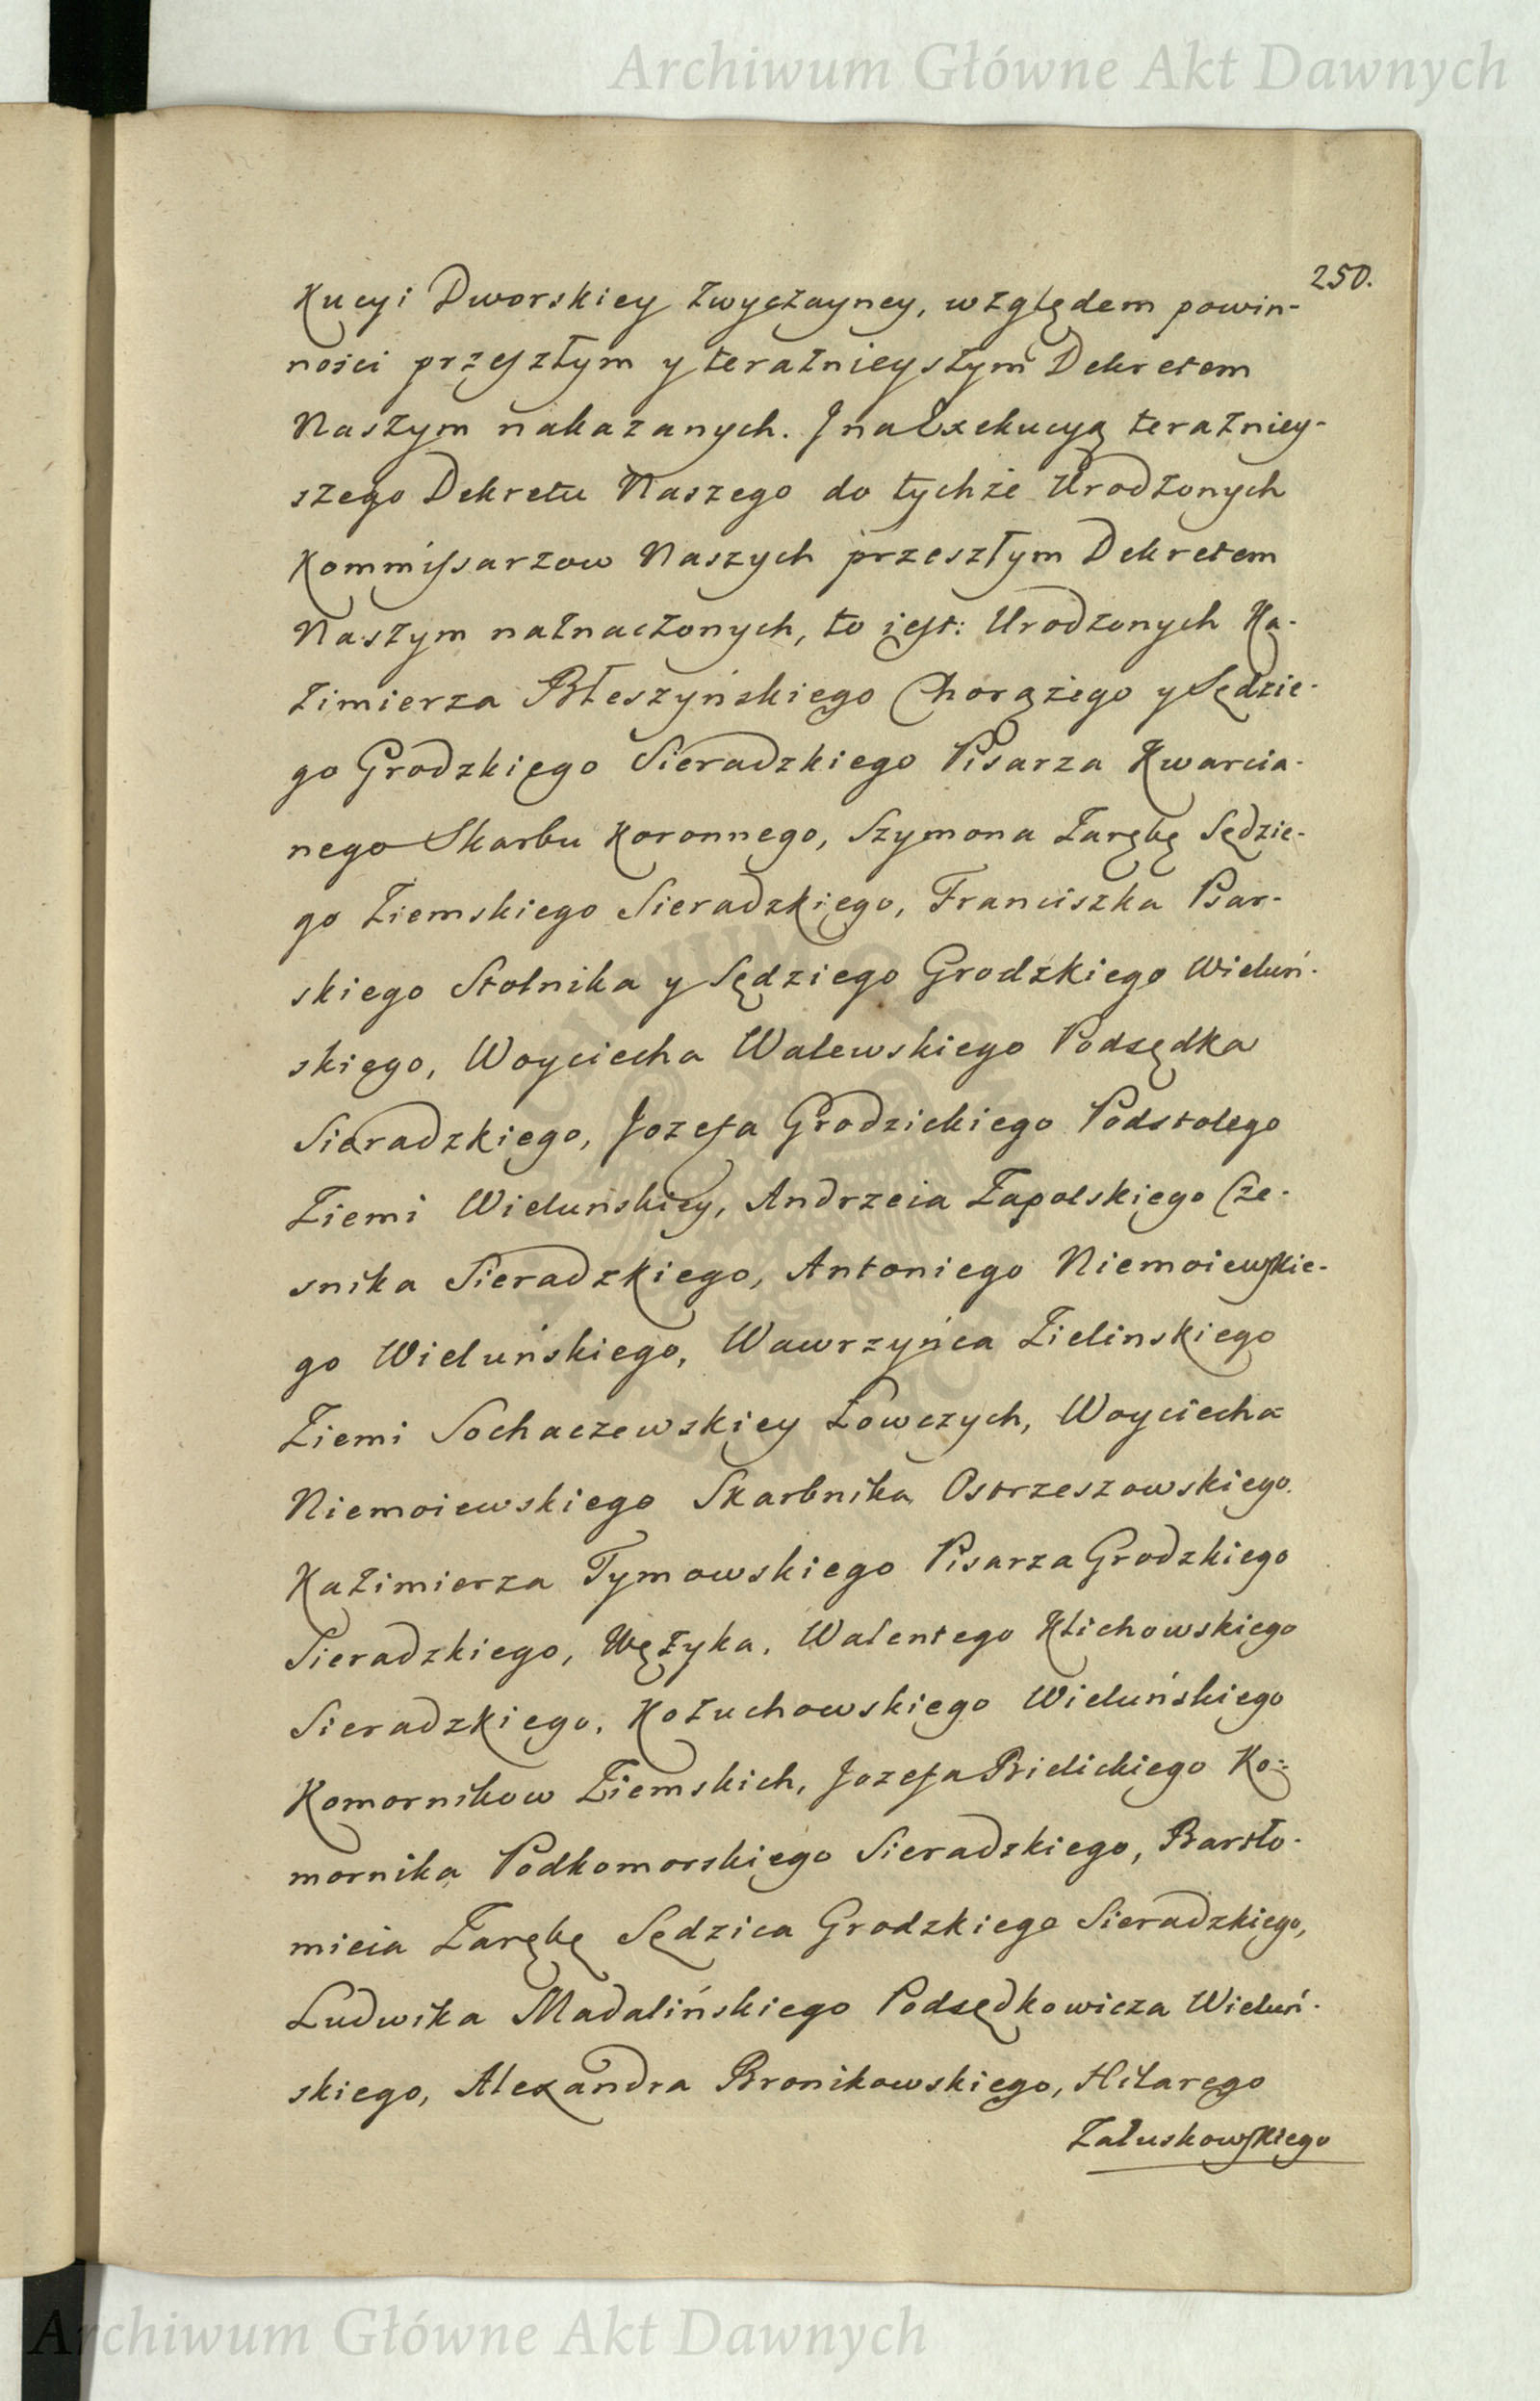 Archiwum Główne Akt Dawnych
250.
kucyi Dworskiey zwyczayney, względem powin-
ności przeszłym y teraznieyszym Dekretem
Naszym nakazanych. J na Exekucyą teraźniey-
szego Dekretu Naszego do tychże Urodzonych
Kommissarzow Naszych przeszłym Dekretem
Naszym naznaczonych, to iest: Urodzonych Ka-
zimierza Błeszyńskiego Chorążego y Sędzie-
go Grodzkiego Sieradzkiego Pisarza Kwarcia-
nego Skarbu Koronnego, Szymona Zarębę Sędzie-
go Ziemskiego Sieradzkiego, Franciszka Psar-
skiego Stolnika y Sędziego Grodzkiego Wieluń-
skiego, Woyciecha Walewskiego Podsędka
Sieradzkiego, Jozefa Grodzickiego Podstolego
Ziemi Wieluńskiey, Andrzeia Zapolskiego Cze-
snika Sieradzkiego, Antoniego Niemoiewskie-
go Wieluńskiego, Wawrzyńca Zielinskiego
Ziemi Sochaczewskiey Łowczych, Woyciecha
Niemoiewskiego Skarbnika Ostrzeszowskiego.
Kazimierza Tymowskiego Pisarza Grodzkiego
Sieradzkiego, Wężyka, Walentego Klichowskiego
Sieradzkiego, Kożuchowskiego Wieluńskiego
Komornikow Ziemskich, Jozefa Bielickiego Ko-
mornika Podkomorskiego Sieradzkiego, Bartło-
mieia Zarębę Sędzica Grodzkiego Sieradzkiego,
Ludwika Madalińskiego Podsędkowicza Wieluń-
skiego, Alexandra Bronikowskiego, Hilarego
Załuskowskiego
Archiwum Główne Akt Dawnych